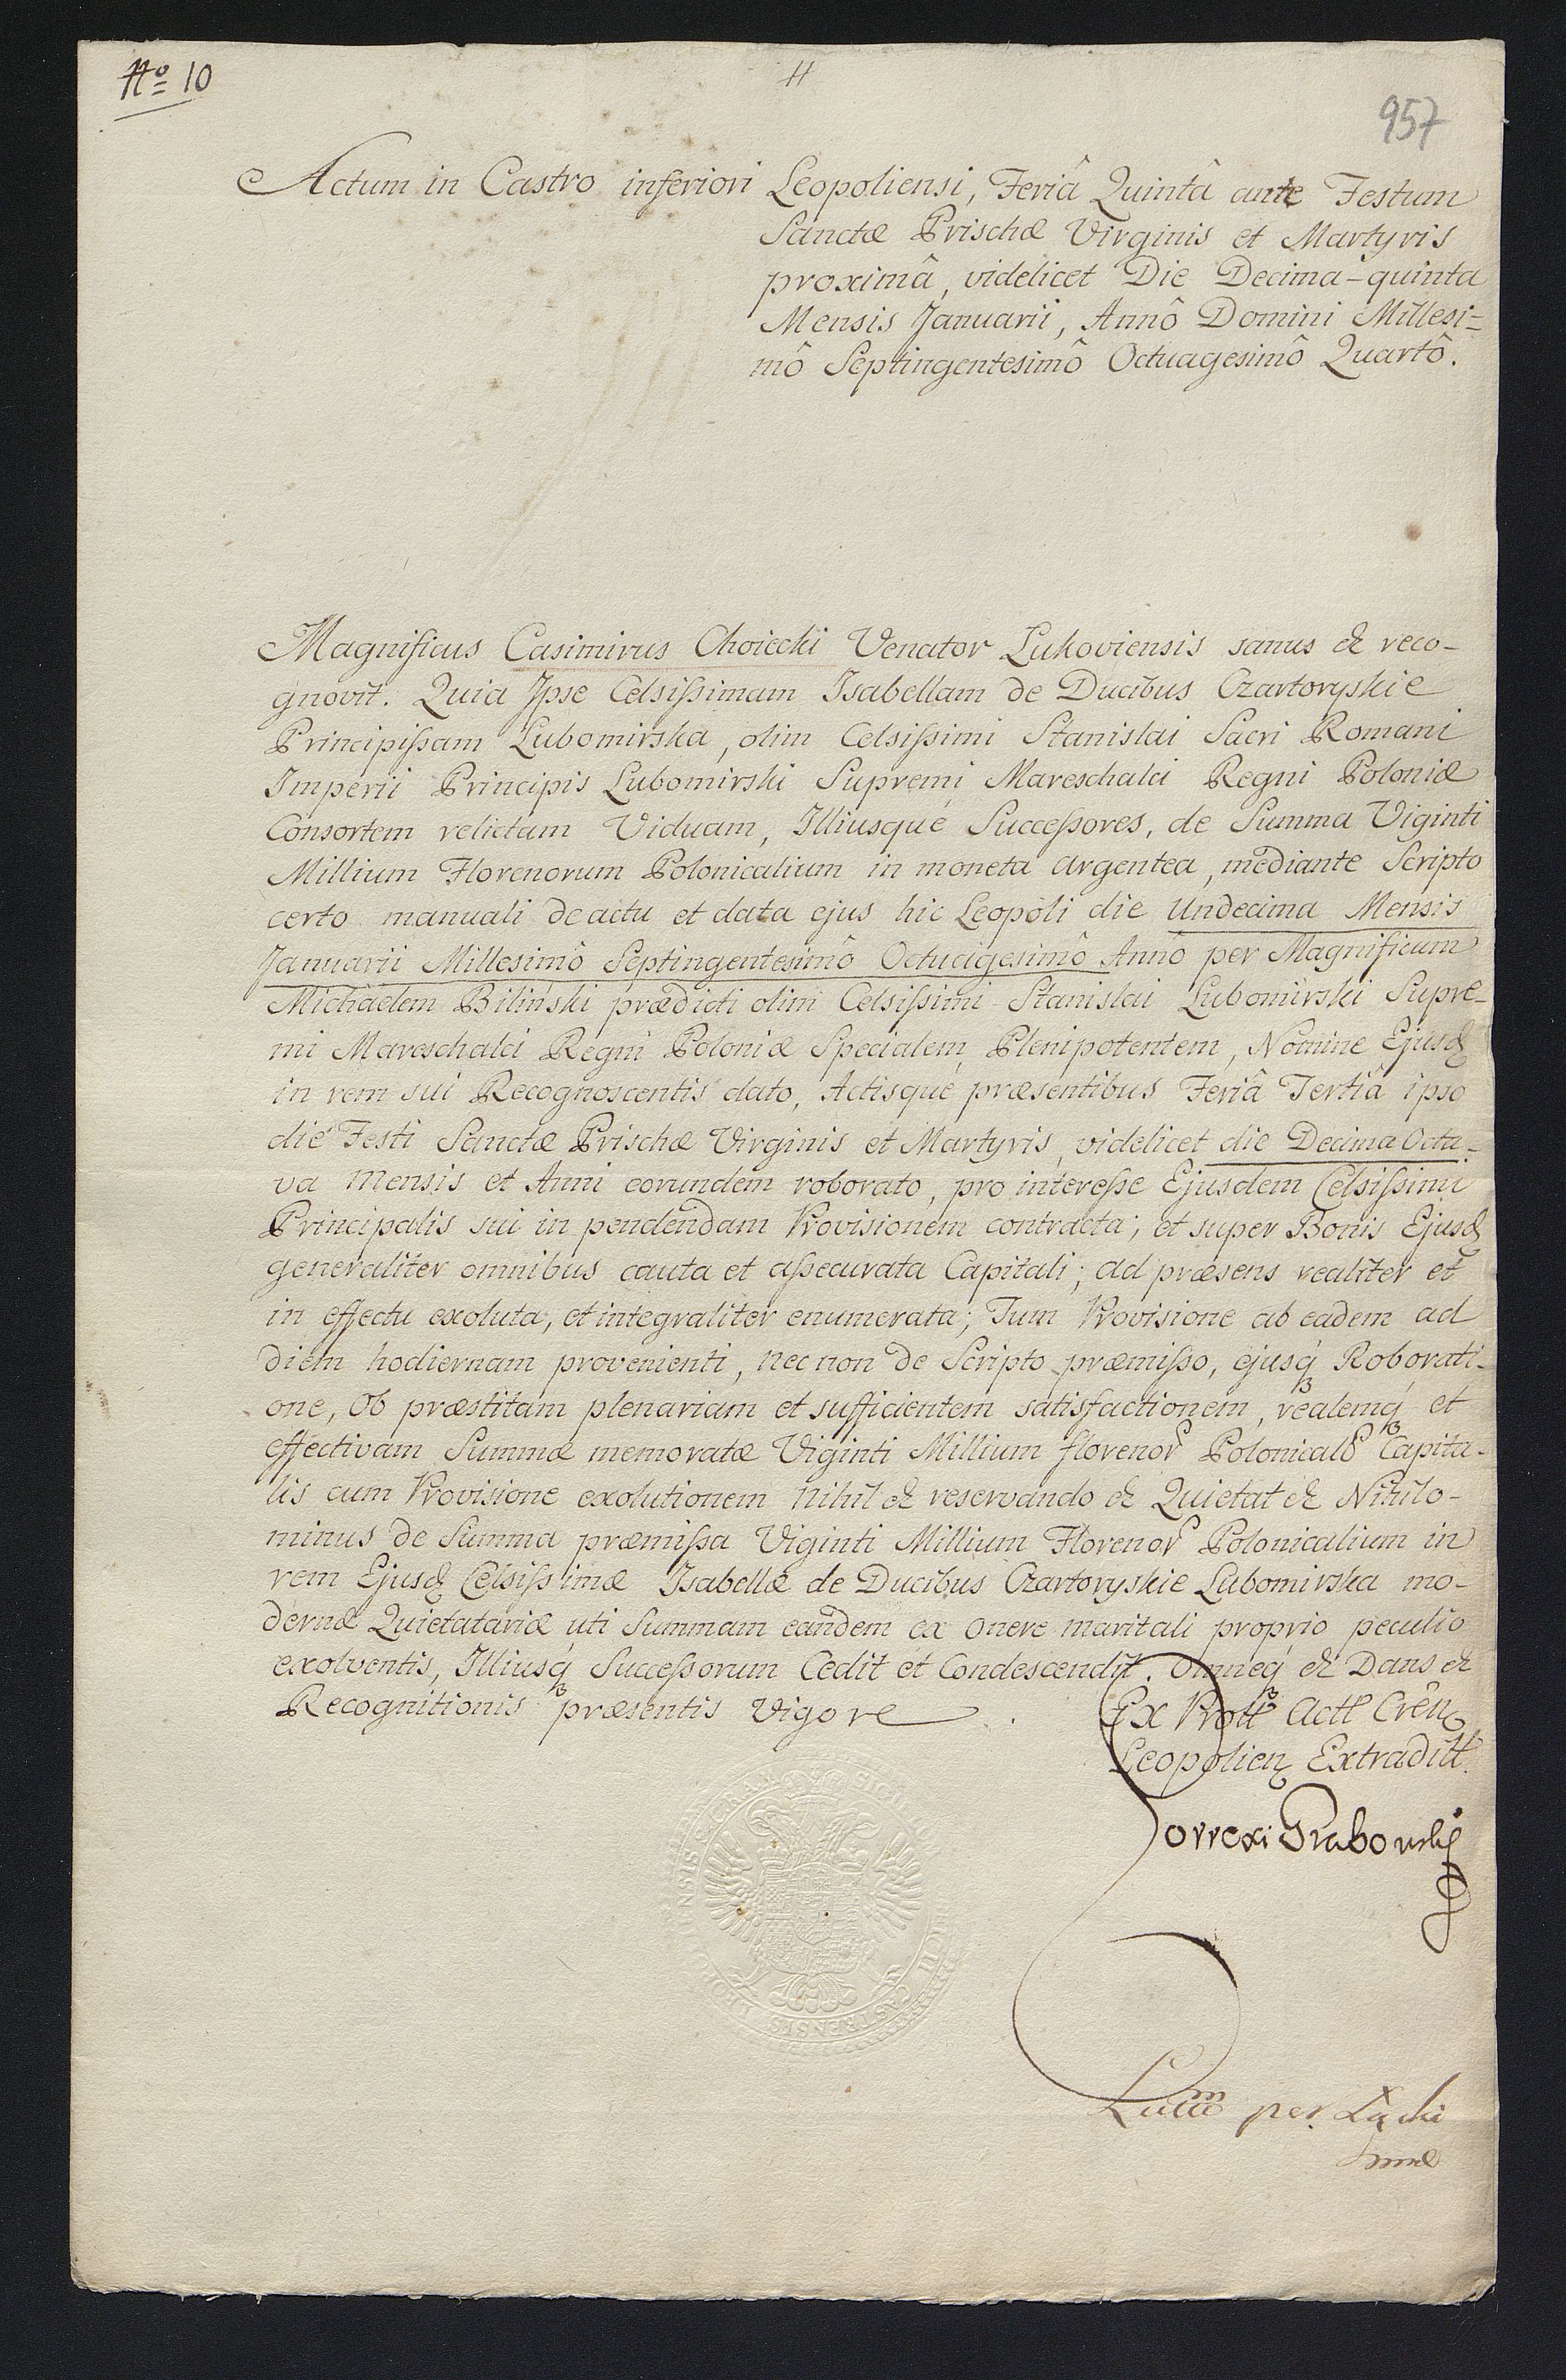 No 10
H
957
Actum in Castro inferiori Leopoliensi, Feriâ Quintâ ante Festum
Sanctæ Prischæ Virginis et Martyris
proximâ, videlicet Die Decima-quinta
Mensis Januarii, Annô Domini Millesi=
mô Septingentesimô Octuagesimô Quartô.
Magnificus Casimirus Choiecki Venator Lukoviensis sanus & reco-
gnovit. Quia Ipse Celsißimam Isabellam de Ducibus Czartoryskie
Principißam Lubomirska, olim Celsißimi Stanislai Sacri Romani
Imperii Principis Lubomirski Supremi Mareschalci Regni Poloniæ
Consortem relictam Viduam, Illiusque Succeßores, de Summa Viginti
Millium Florenorum Polonicalium in moneta argentea, mediante Scripto
certo manuali de actu et data ejus hic Leopoli die Undecima Mensis
Januarii Millesimô Septingentesimô Octuagesimô Annô per Magnificum
Michaelem Biliński prædicti olim Celsißimi Stanislai Lubomirski Supre-
mi Mareschalci Regni Poloniæ Specialem Plenipotentem, Nomine Ejusd
in rem sui Recognoscentis dato, Actisque præsentibus Feriâ Tertiâ ipso
die Festi Sanctæ Prischæ Virginis et Martyris, videlicet die Decima Octa-
va Mensis et Anni eorundem roborato, pro intereße Ejusdem Celsißimi
Principalis sui in pendendam Provisionem contracta; et super Bonis Ejusd
generaliter omnibus cauta et aßecurata Capitali; ad præsens realiter et
in effectu exoluta, et integraliter enumerata; Tum Provisione ab eadem ad
diem hodiernam provenienti, nec non de Scripto præmißo, ejusq Roborati-
one, Ob præstitam plenariam et sufficientem satisfactionem, realemq et
effectivam Summæ memoratæ Viginti Millium florenor Polonical Capita-
lis cum Provisione exolutionem nihil & reservando & Quietat & Nihilo-
minus de Summa præmißa Viginti Millium Florenor Polonicalium in
rem Ejusd Celsißimæ Isabellæ de Ducibus Czartoryskie Lubomirska mo-
dernæ Quietatariæ uti Summam eandem ex onere maritali proprio peculio
exolventis, Illiusq Succeßorum Cedit et Condescendit. Omneq & Dans &
Recognitionis præsentis vigore
Ex Prott Actt Cren
Leopolien Extraditt
Correxi Grabowski
CASTRENSIS
Lectm per Łącki